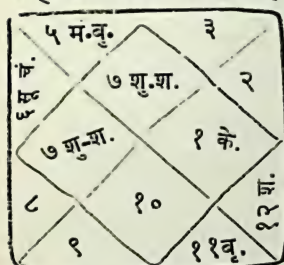 ५ मं.बु.
३
६ सू चं.
७ शु.श.
२
७ शु-श.
१ के.
८
१०
१२ श.
९
११वृ.